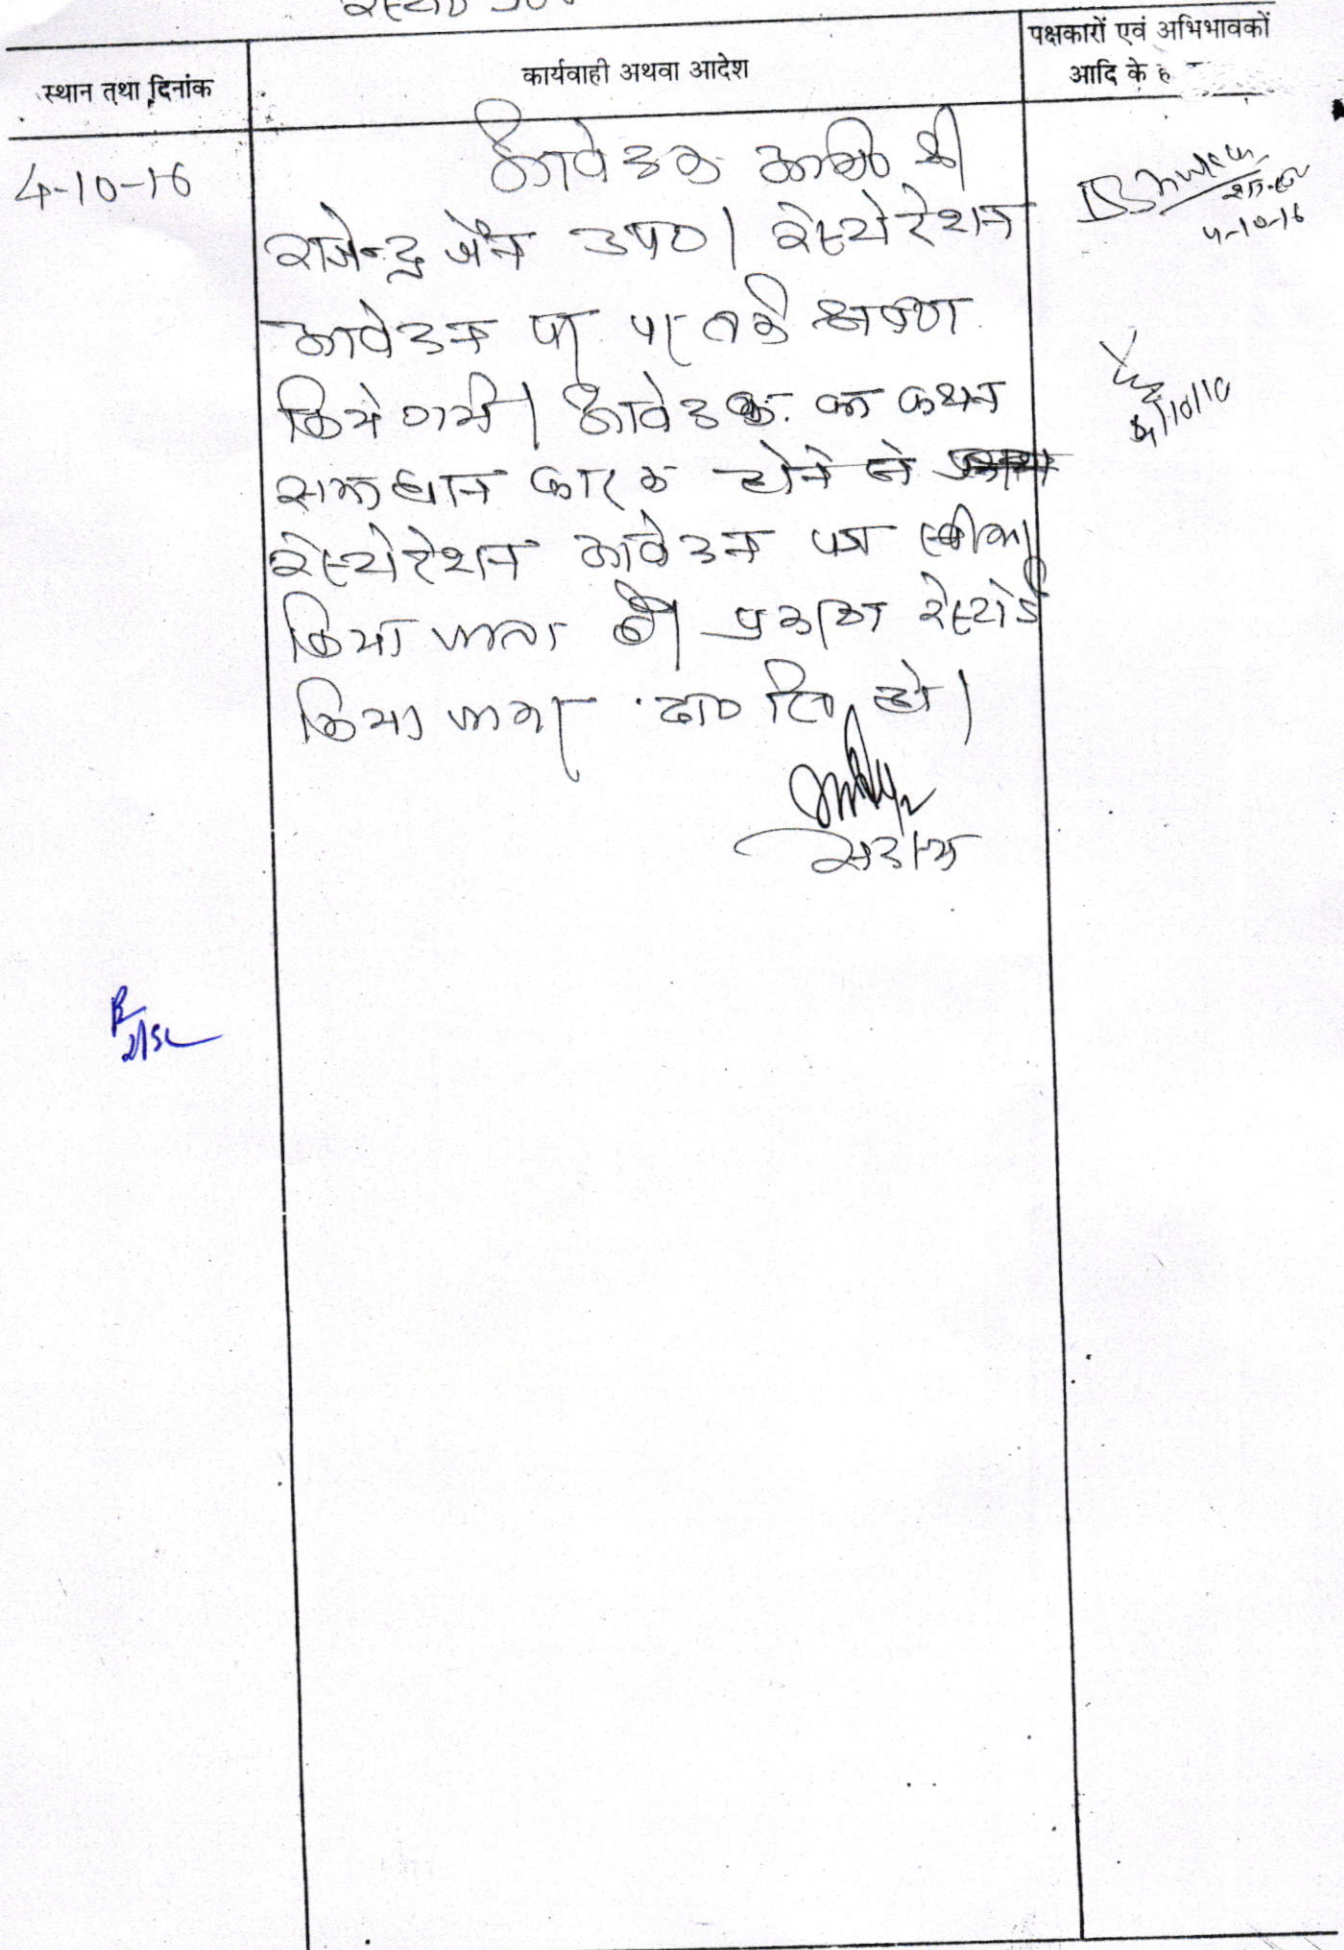 स्थान तथा दिनांक
कार्यवाही अथवा आदेश
पक्षकारों एवं अभिभावकों
आदि के ह
4-10-16
आवेदक अभि0 श्री
राजेन्द्र जैन उप0। रेस्टोरेशन
आवेदन पत्र पर तर्क श्रवण
किये गये। आवेदक का कथन
समाधान कारक होने से
रेस्टोरेशन आवेदन पत्र स्वीकार
किया जाता है। प्रकरण रेस्टोर्ड
किया जाकर दा0 रि0 हो।
सदस्य
4-10-16